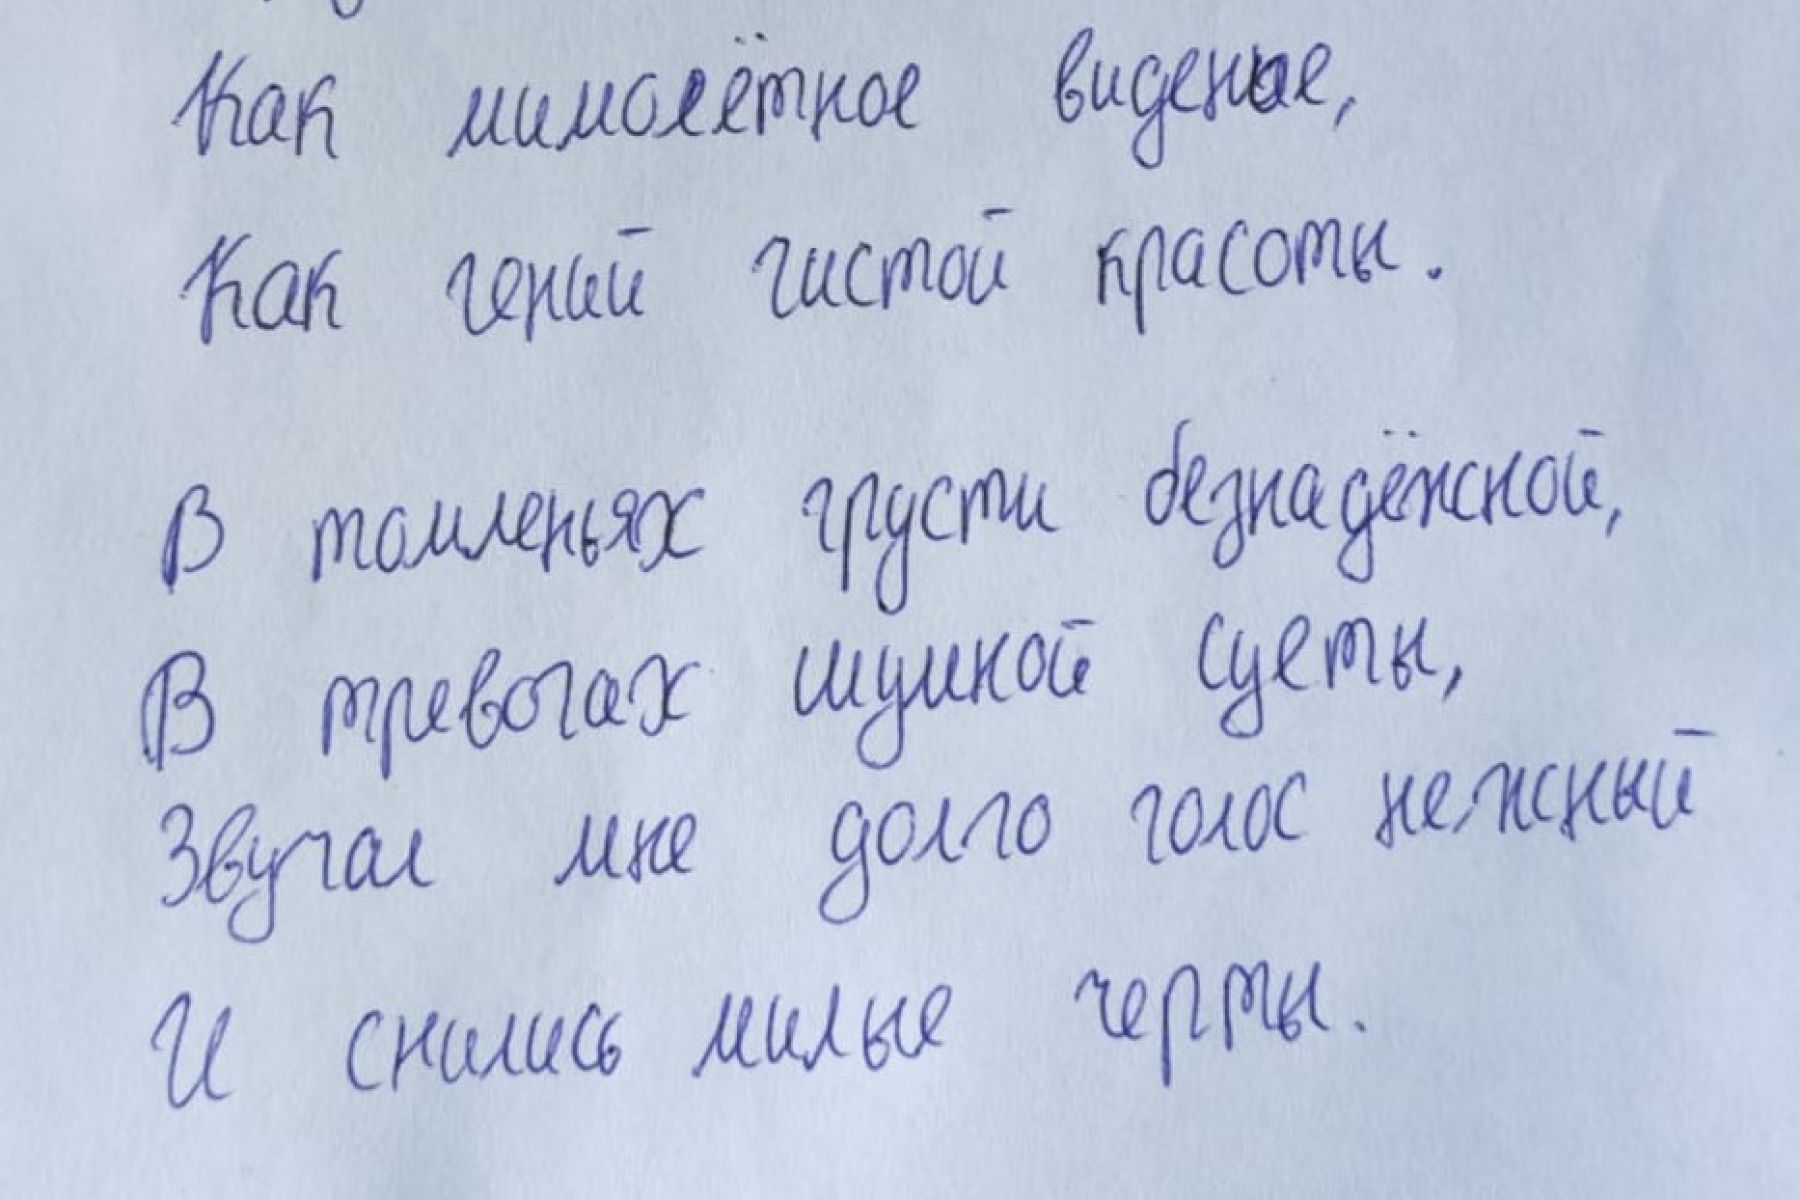 Как мимолётное виденье,
Как гений чистой красоты.
В томленьях грусти безнадёжной,
В тревогах шумной суеты,
Звучал мне долго голос нежный
И снились милые черты.